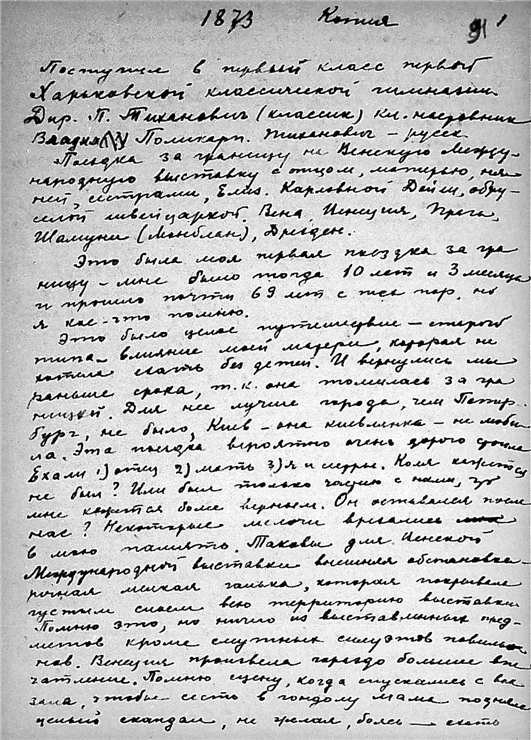 1873 Копия 91 1
Поступил в первый класс первой
Харьковской классической гимназии
Дир. П. Тиханович (классик) Кл. наставник
Владим Поликарп. Тиханович – русск
Поездка за границу на Венскую Между-
народную выставку с отцом, матерью, ня-
ней, сестрами, Елиз. Карловной Дейли, обру-
селой швейцаркой. Вена, Венеция, Прага,
Шамуни (Монблан), Дрезден.
Это была моя первая поездка за гра
ницу – мне было тогда 10 лет и 3 месяца
и прошло почти 69 лет с тех пор, но
я кое-что помню.
Это было целое путешествие – старого
типа – влияние моей матери, которая не
хотела ехать без детей. И вернулись мы
раньше срока, т.к. она томилась за гра
ницей. Для нее лучше города, чем Петер
бург, не было, Киев – она киевлянка – не люби
ла. Эта поездка вероятно очень дорого стоила
Ехали 1) отец 2) мать 3) я и сестры. Коля кажется
не был? Или был только частию с нами, это
мне кажется более верным. Он оставался после
нас? Некоторые мелочи врезались
в мою память. Таковы для Венской
Международной выставки внешняя обстановка –
речная мелкая галька, которая покрывала
густым слоем всю территорию выставки
Помню это, но ничего из выставленных пред-
метов кроме смутных силуэтов павильо
нов. Венеция произвела гораздо большее впе
чатление. Помню сцену, когда спускались с вок
зала, чтобы сесть в гондолу мама подняла
целый скандал, не желая, боясь – ехать